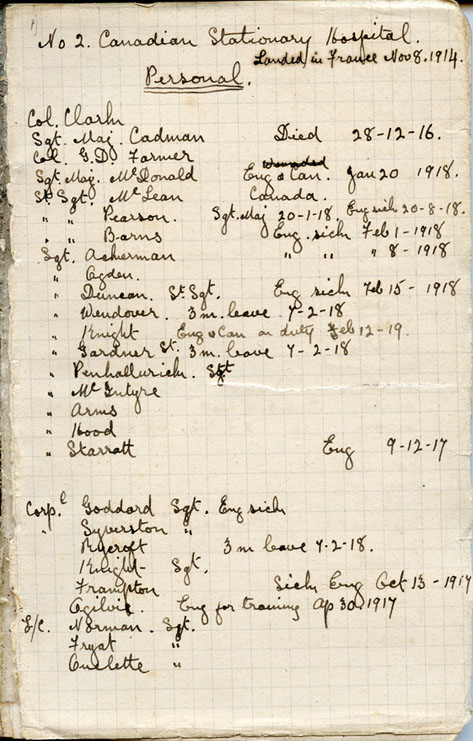 No 2. Canadian Stationary Hospital.
Landed in France Nov 8. 1914.
Personal.
Col. Clark
Sgt. Maj. Cadman Died 28-12-16.
Col. G.D. Farmer
Sgt. Maj. McDonald Eng & Can. Jan 20 1918.
St. Sgt. McLean Canada.
" " Pearson. Sgt. Maj 20-1-18. Eng sick 20-8-18.
" " Barns Eng. sick Feb 1-1918
Sgt. Ackerman " " " 8-1918
" Ogden.
" Duncan. St. Sgt. Eng sick Feb 15-1918
" Wendover. 3 m. leave 7-2-18
" Knight Eng & Can on duty Feb 12-19.
" Gardner St. 3 m. leave 7-2-18
" Penhallurick. Sgt
" McIntyre
" Arms
" Hood
" Starratt Eng 9-12-17
Corp.l Goddard Sgt. Eng sick
" Syverston "
Rycroft 3 m leave 7-2-18.
Knight- Sgt.
Frampton Sick Eng Oct 13-1917
Ogilvie. Eng for training Ap 30. 1917
L/C. Norman. Sgt.
Fryat "
Ouelette "